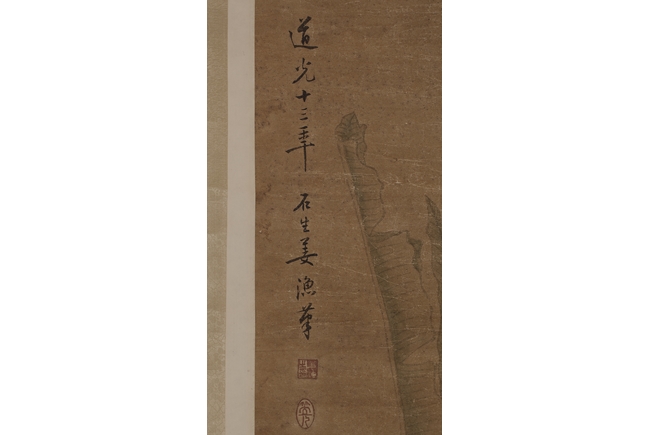 道光十三年 石生姜漁筆